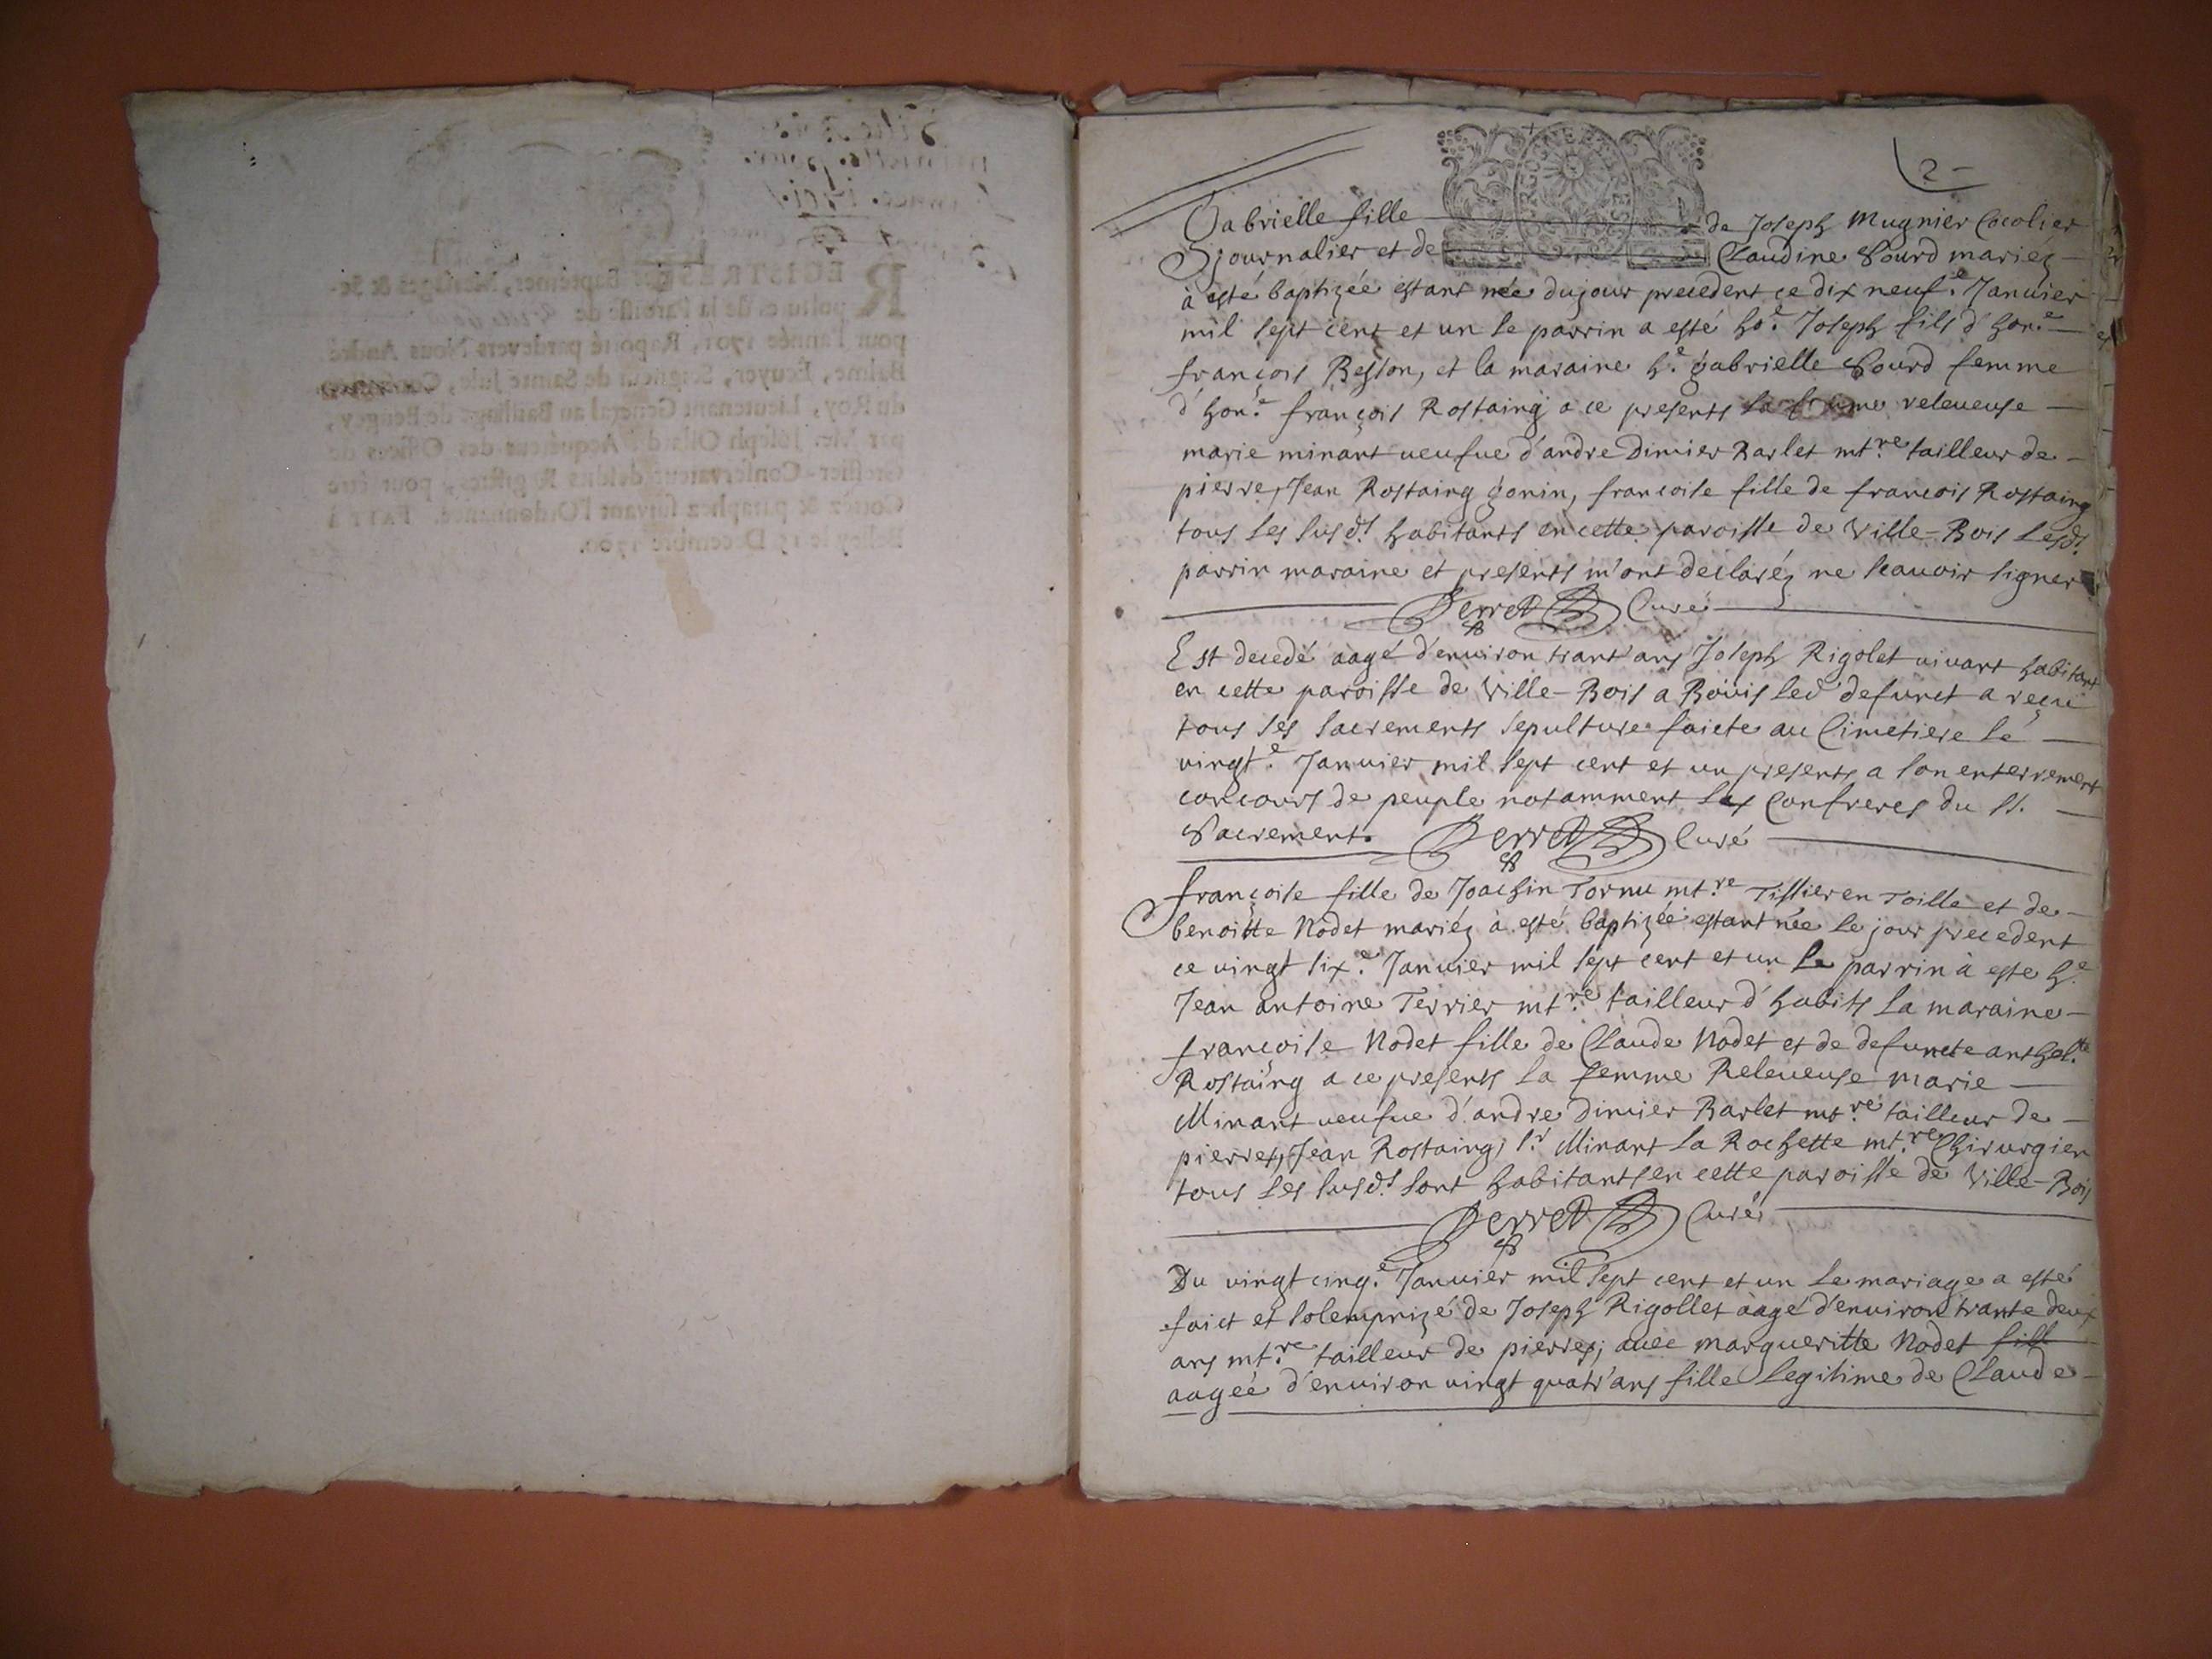 REGISTRES des Baptêmes, Mariages & Se-
poltures de la Paroisse de
pour l'année 1701. Raporté pardevers Nous André
Balme, Ecuyer, Seigneur de Sainte Jule,
du Roy, Lieutenant General au Bailliage de Beugey,
par Me. Joseph Acquéreur des Offices de
Greffier-Conservateur desdits Registres, pour être
Cottez & paraphez suivant l'Ordonnance. FAIT à
Belley le 15 Decembre 1700.
2
Gabrielle fille de Joseph Mugnier
journalier et de Claudine Sourd mariéz
à esté baptizée estant née du jour precedent ce dix neuf.e Januier
mil sept cent et un le parrin a esté ho.e Joseph fils d'hon.e
françois Besson, et la maraine h.e gabrielle Sourd femme
d'hon.e françois Rostaing a ce presents la femme releueuse
marie minant ueufue d'andre Dimier Barlet mt.re tailleur de
pierre, Jean Rostaing gonin, francoise fille de francois Rostaing
tous les susd.s habitants en cette paroisse de Ville-Bois lesd.s
parrin maraine et presents m'ont declaréz ne scauoir signer
Perret Curé
Est decedé aagé d'enuiron trant'ans Joseph Rigolet uiuant habitant
en cette paroisse de Ville-Bois a Boüis led defunct a reçu
tous ses sacrements sepulture faicte au Cimetiere le
uingt.e Januier mil sept cent et un presents a son enterrement
concours de peuple notamment les Confreres du St.
Sacrement. Perret Curé
françoise fille de Joachin Tornu mt.re Tissier en Toille et de
benoitte Nodet mariéz à esté baptizéé estant née le jour precedent
ce uingt six.e Januier mil sept cent et un le parrin à esté h.e
Jean antoine Terrier mt.re tailleur d'habits la maraine
françoise Nodet fille de Claude Nodet et de defuncte anthel.tte
Rostaing a ce presents la femme Releueuse marie
Minant ueufue d'andre dimier Barlet mt.re tailleur de
pierres, Jean Rostaing, s.r Minant la Rochette mt.re Chirurgien
tous les susd.s sont habitants en cette paroisse de Ville-Bois
Perret Curé
Du uingt cinq.e Januiér mil sept cent et un le mariage a esté
faict et solempnizé de Joseph Rigollet aagé d'enuiron trante deux
ans mt.re tailleur de pierres, auec margueritte Nodet fill
aagéé d'enuiron uingt quatr'ans fille legitime de Claude